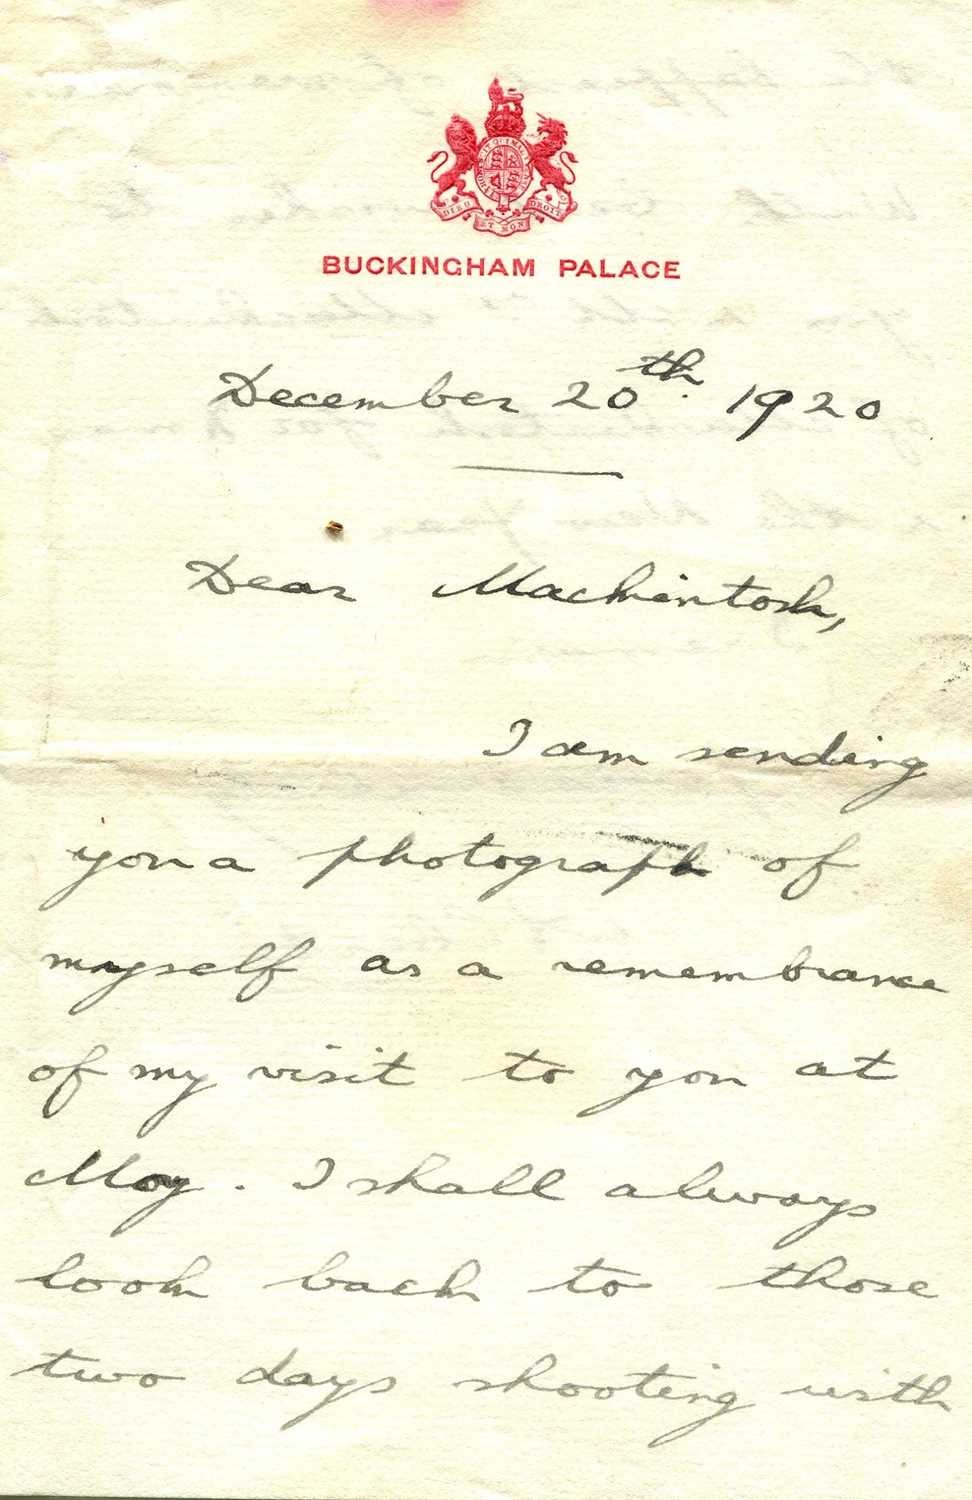 HONI SOIT QUI MAL Y PENSE
DIEU ET MON DROIT
BUCKINGHAM PALACE
December 20th. 1920
Dear Mackintosh,
I am sending
you a photograph of
myself as a remembrance
of my visit to you at
Moy. I shall always
look back to those
two days shooting with